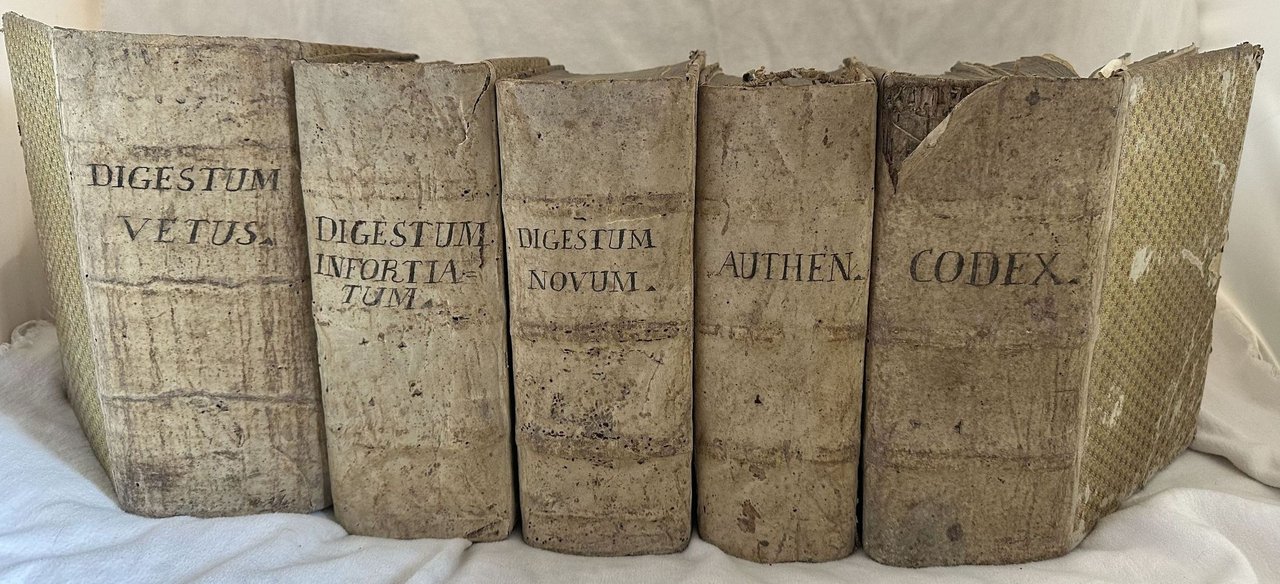 DIGESTUM
VETUS.
DIGESTUM
INFORTIA=
TUM.
DIGESTUM
NOVUM.
AUTHEN.
CODEX.